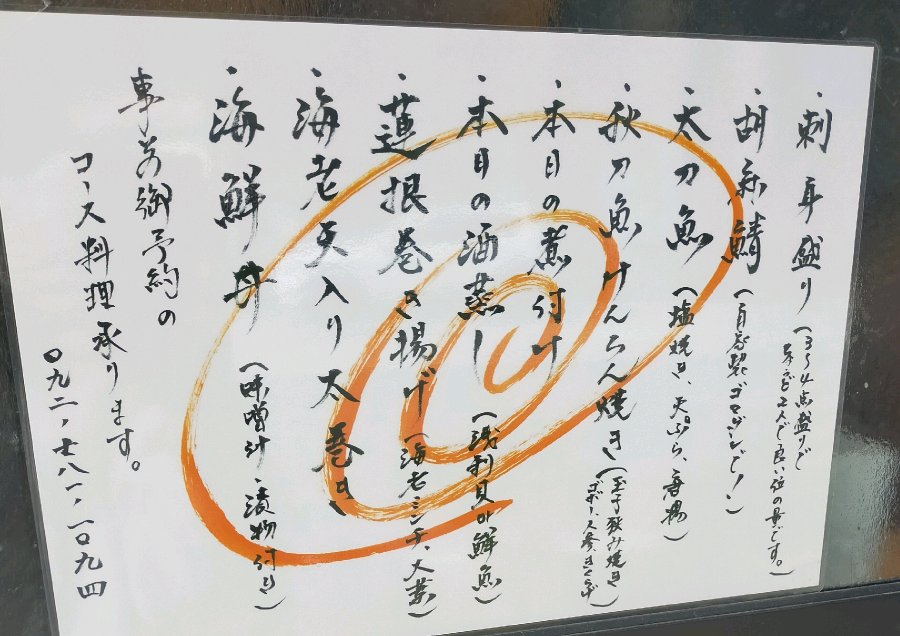 ・刺身盛り（3〜4点盛りで
２人で良い位の量です。）
・胡麻鯖（自家製ゴマダレで！）
・太刀魚（塩焼き、天ぷら、唐揚）
・秋刀魚けんちん焼き（玉子挟み焼き
ゴボー、人参、きくらげ）
・本日の煮付け
・本日の酒蒸し（浅利貝or鮮魚）
・蓮根巻き揚げ（海老ミンチ、大葉）
・海老天入り太巻き
・海鮮丼（味噌汁・漬物付き）
事前御予約の
コース料理承ります。
〇九二・七八一・一〇九四